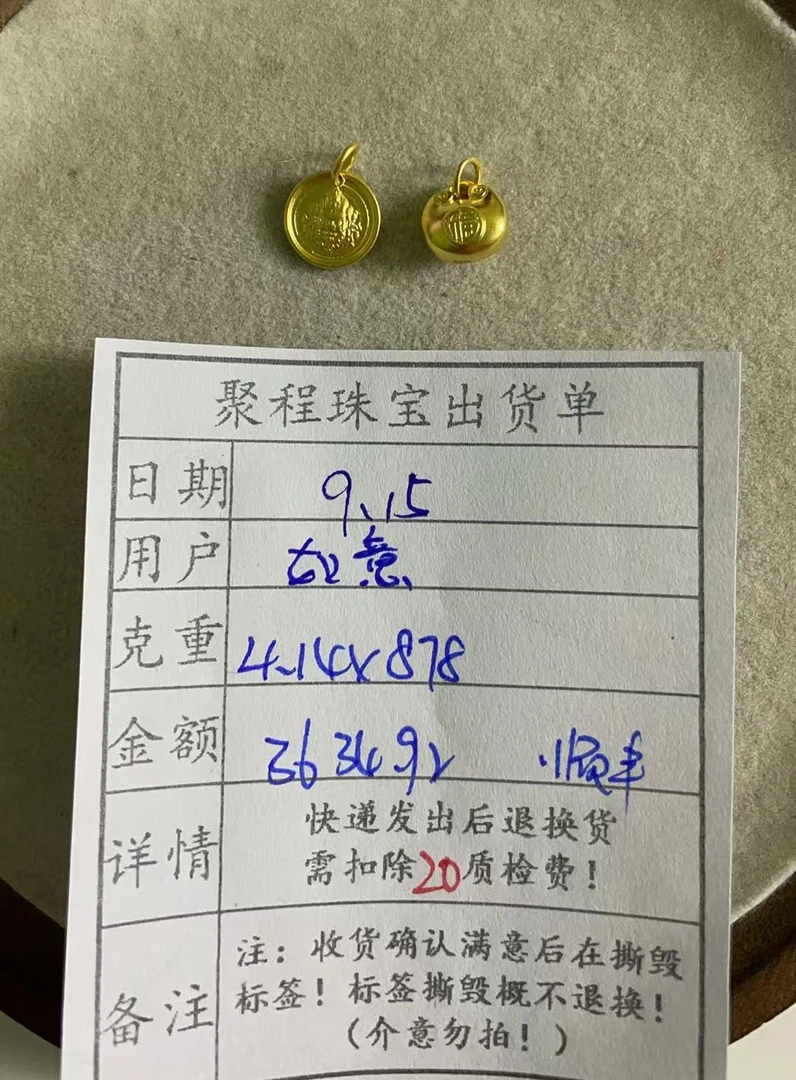 福
聚程珠宝出货单
日期 9.15
用户 如意
克重 4.14x878
金额 3634.92 顺丰
详情 快递发出后退换货
需扣除20质检费！
备注 注：收货确认满意后在撕毁
标签！标签撕毁概不退换！
（介意勿拍！）